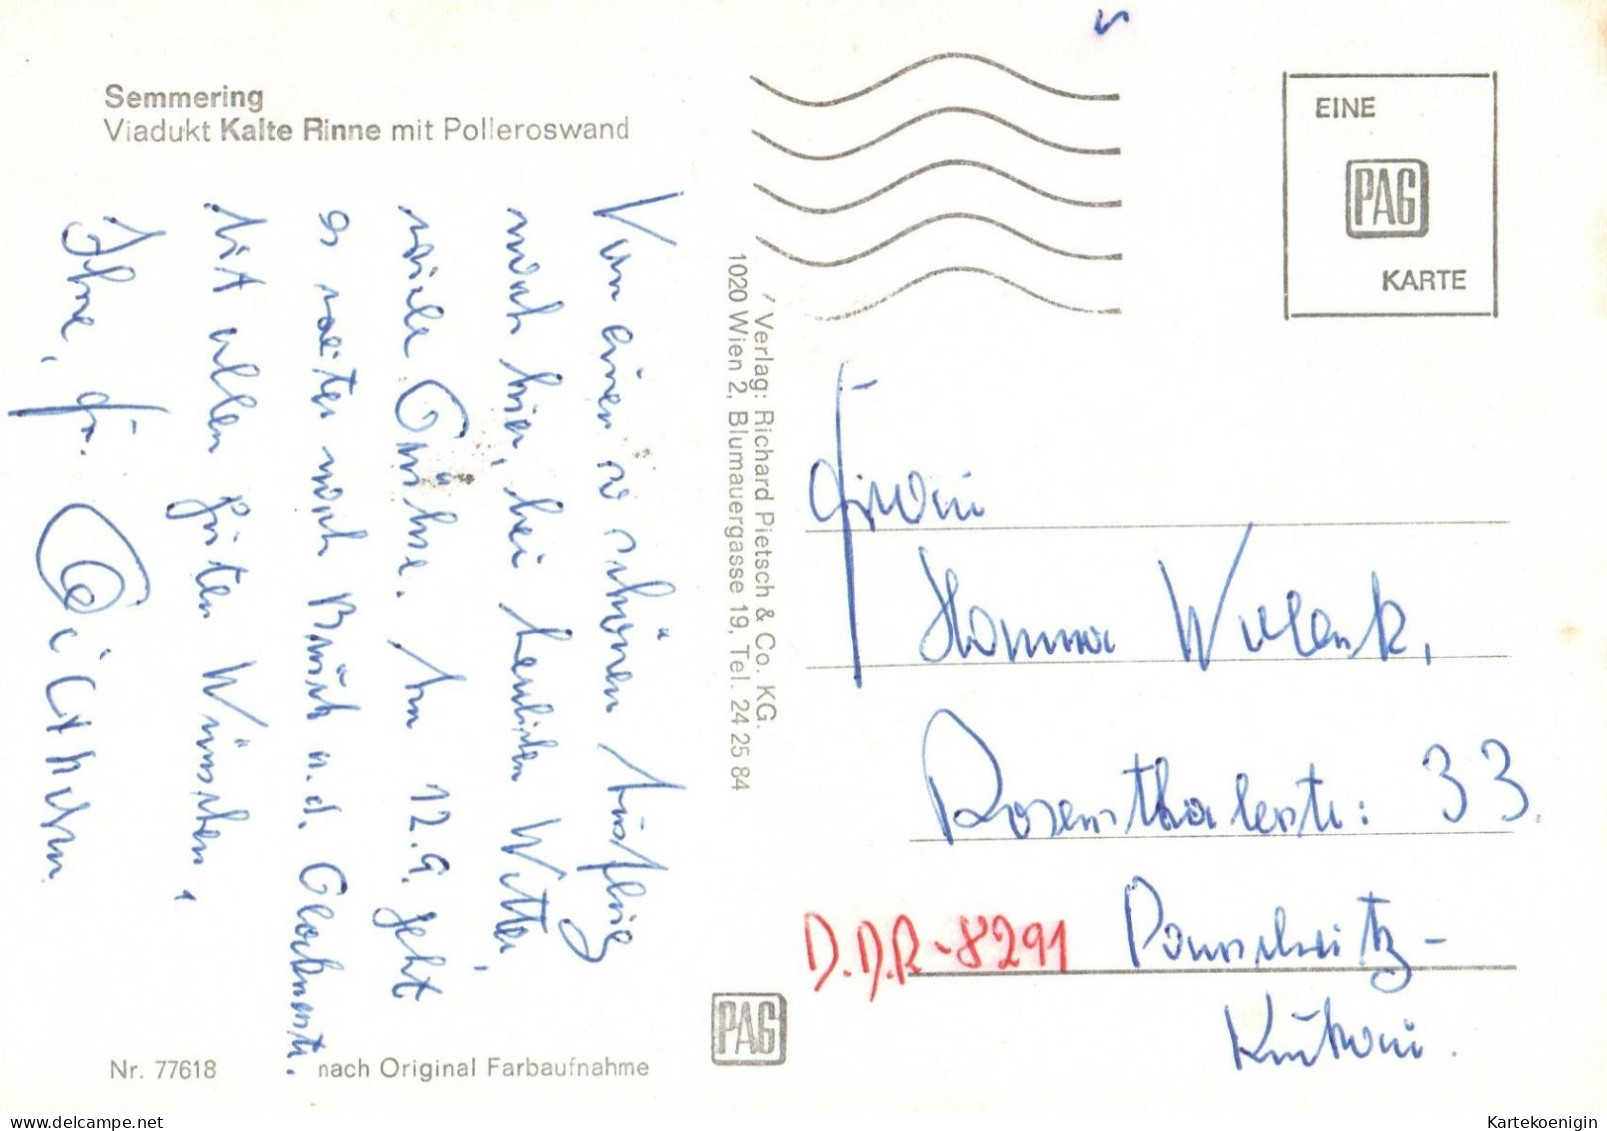 Semmering
Viadukt Kalte Rinne mit Polleroswand
Von einem so schönen Ausflug
noch hier, bei
viele Grüsse. Am 12.9. geht
es weiter nach Bruck a. d. Glocknerstr.
Mit allen guten Wünschen,
Ihre, Fr.
Nr. 77618
nach Original Farbaufnahme
Verlag: Richard Pietsch & Co. KG.
1020 Wien 2, Blumauergasse 19, Tel. 24 25 84
PAG
EINE
PAG
KARTE
Hanna
Rosenthalerstr: 33.
D.D.R-8291 Panschwitz-
Kuckau.
Kartekoenigin